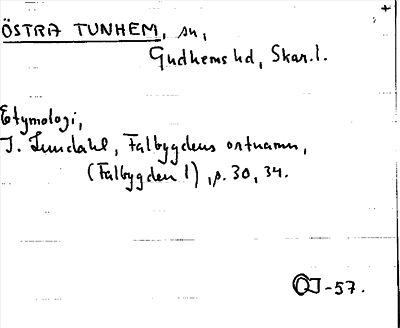 ÖSTRA TUNHEM, sn,
Gudhems hd, Skar. l.
Etymologi,
I. Lundahl, Falbygdens ortnamn,
(Falbygden 1), p. 30, 34.
OJ-57.